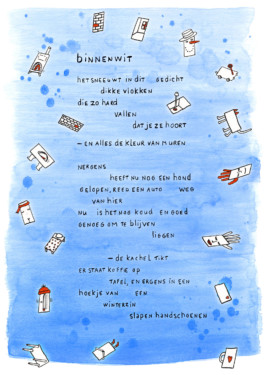 binnenwit
het sneeuwt in dit gedicht
dikke vlokken
die zo hard
vallen
dat je ze hoort
– en alles de kleur van muren
nergens
heeft nu nog een hond
gelopen, reed een auto weg
van hier
nu is het nog koud en goed
genoeg om te blijven
liggen
– de kachel tikt
er staat koffie op
tafel, en ergens in een
hoekje van een
winterzin
slapen handschoenen